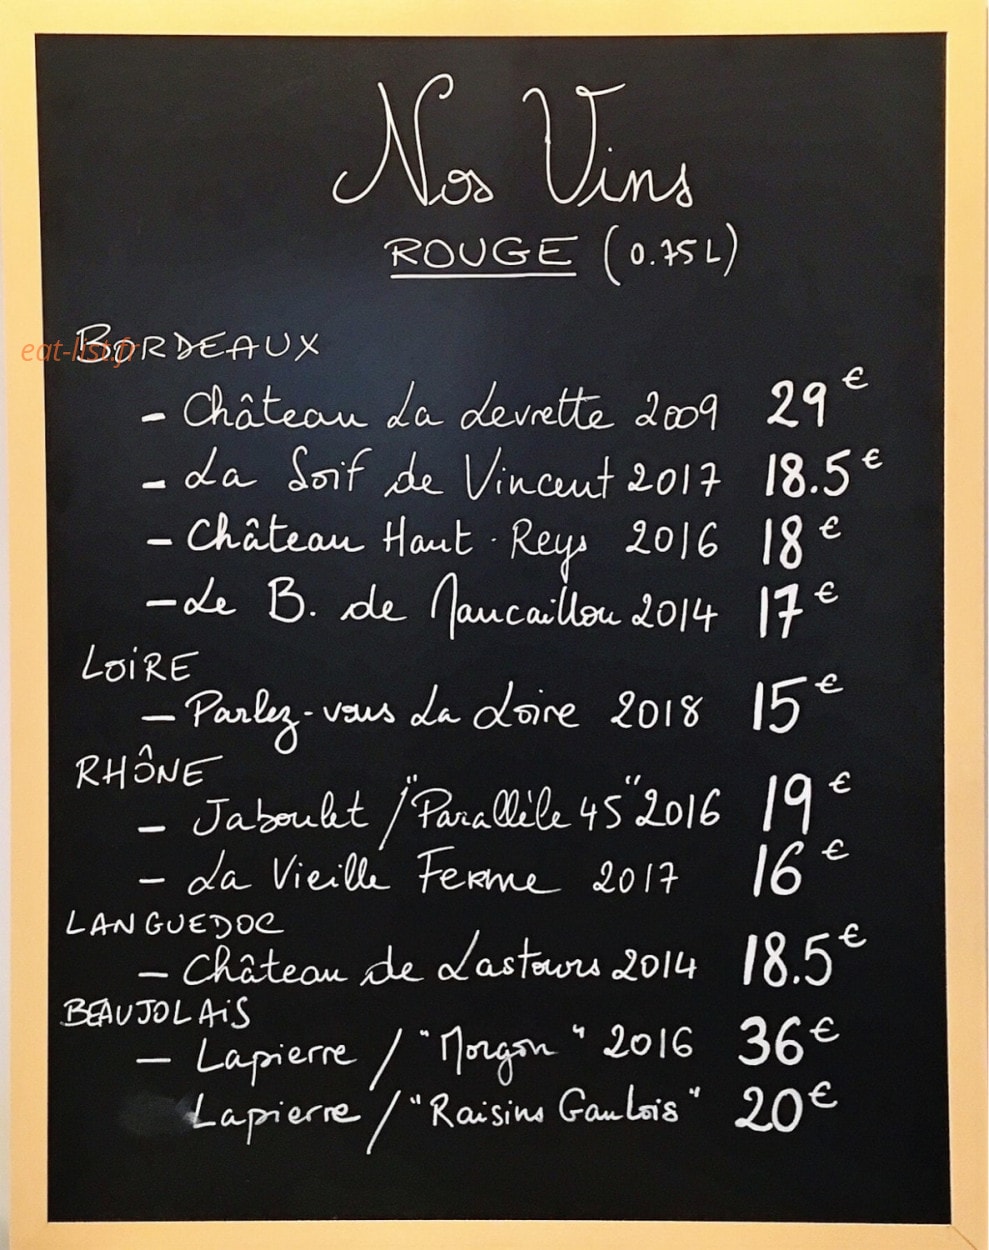 Nos Vins
ROUGE (0.75L)
eat-list.fr
BORDEAUX
- Château La Levrette 2009 29€
- La Soif de Vincent 2017 18.5€
- Château Haut-Reys 2016 18€
- Le B. de Maucaillou 2014 17€
LOIRE
- Parlez-vous La Loire 2018 15€
RHÔNE
- Jaboulet / "Parallèle 45" 2016 19€
- La Vieille Ferme 2017 16€
LANGUEDOC
- Château de Lastours 2014 18.5€
BEAUJOLAiS
- Lapierre / "Morgon" 2016 36€
Lapierre / "Raisins Gaulois" 20€